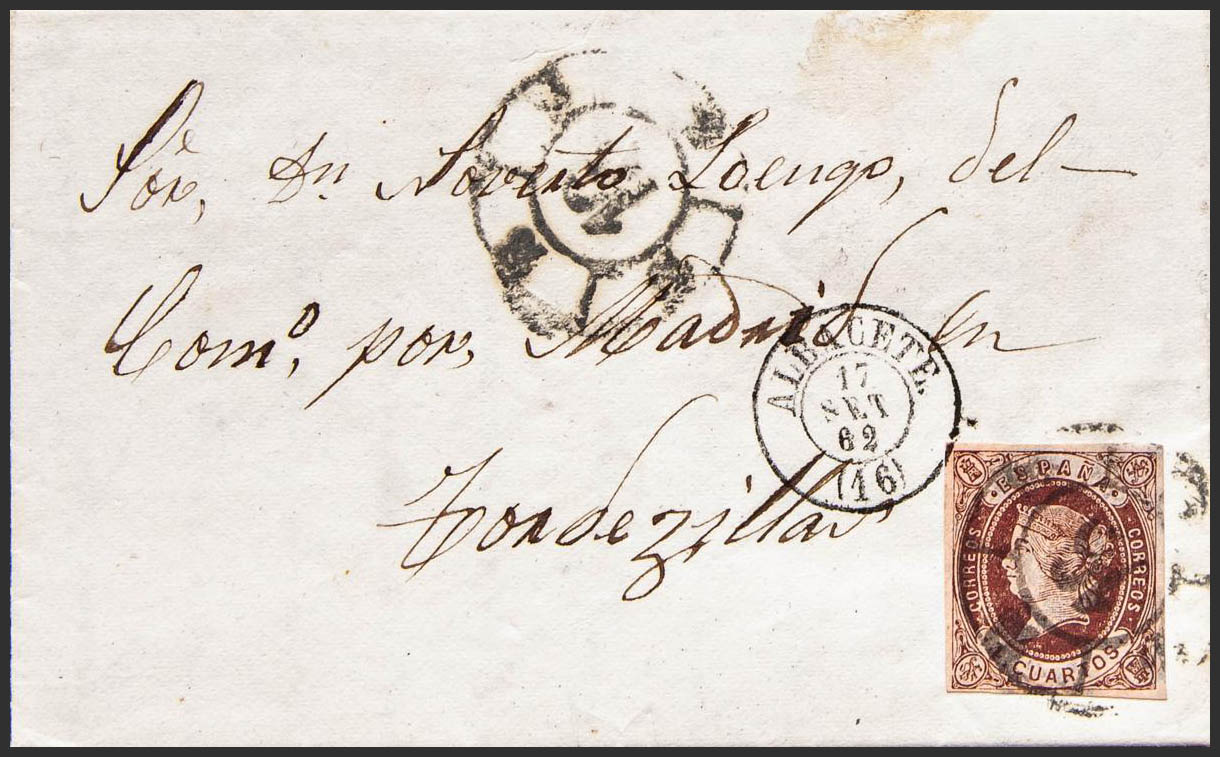 Sōr, Dn Noverto Loengo, del
Comº, por, Madrid en
Tordezillas
ALBACETE
17
SET
62
(16)
· ESPAÑA ·
CORREOS
CORREOS
4 CUARTOS